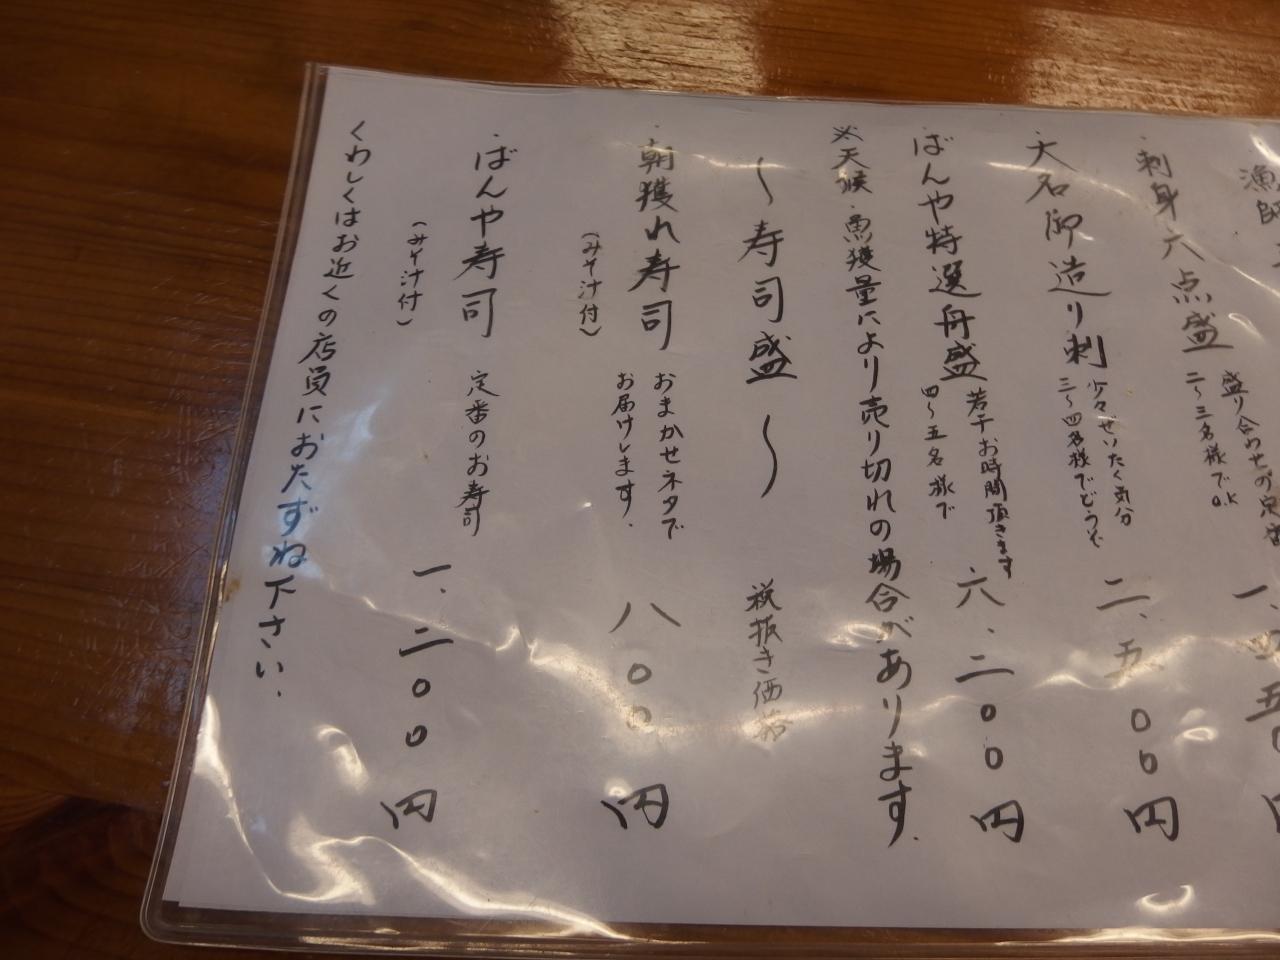 漁師
・刺身六点盛
盛り合わせの定番
二〜三名様でo.k
一、四五0円
・大名御造り刺
少々ぜいたく気分
三〜四名様でどうぞ
二、五00円
・ばんや特選舟盛
若干お時間頂きます
四〜五名様で
六、二00円
※天候・魚獲量により売り切れの場合があります.
〜寿司盛〜
税抜き価格
・朝獲れ寿司
(みそ汁付)
おまかせネタで
お届けします.
八00円
・ばんや寿司
(みそ汁付)
定番のお寿司
一、二00円
くわしくはお近くの店員におたずね下さい.